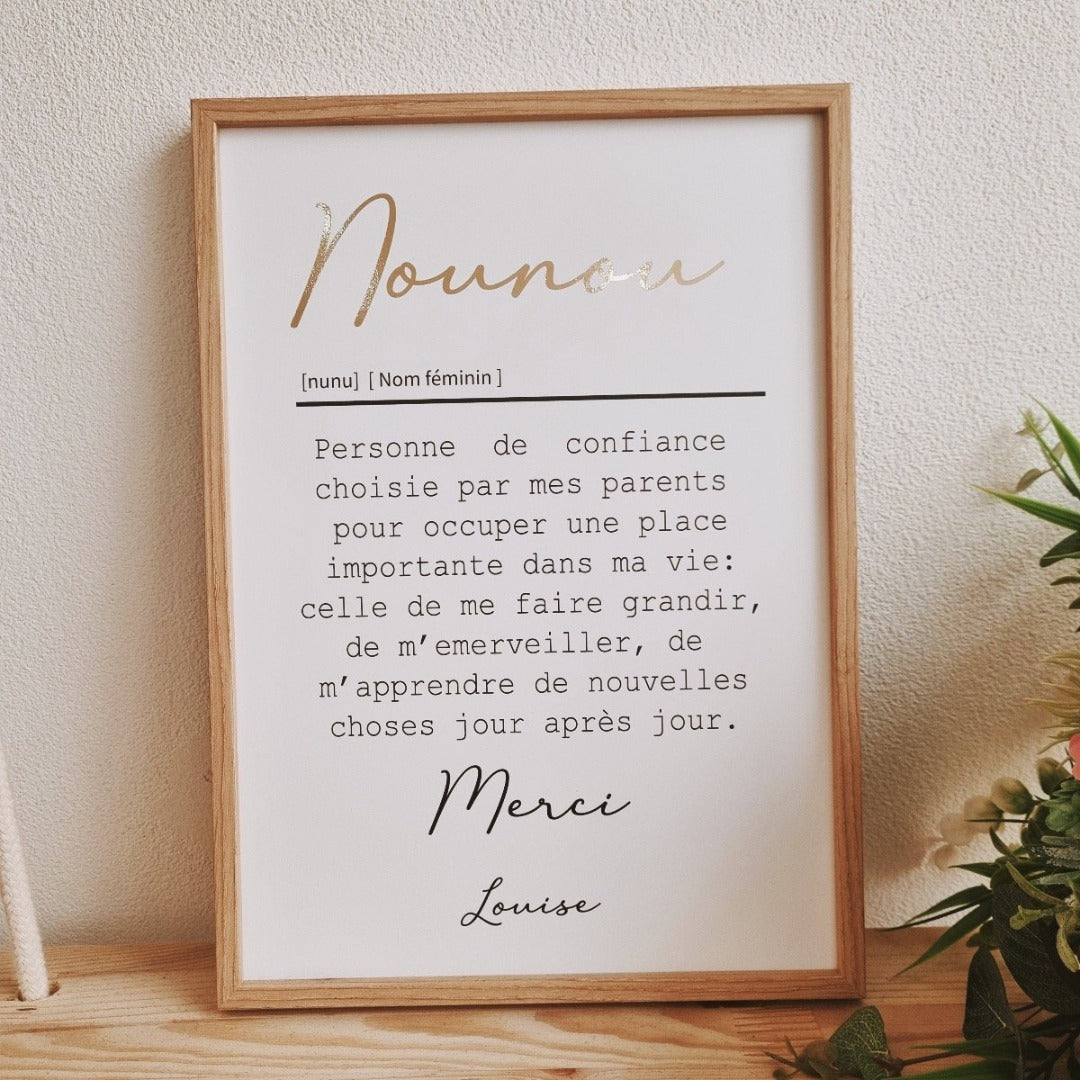 Nounou
[nunu] [ Nom féminin ]
Personne de confiance
choisie par mes parents
pour occuper une place
importante dans ma vie:
celle de me faire grandir,
de m’emerveiller, de
m’apprendre de nouvelles
choses jour après jour.
Merci
Louise